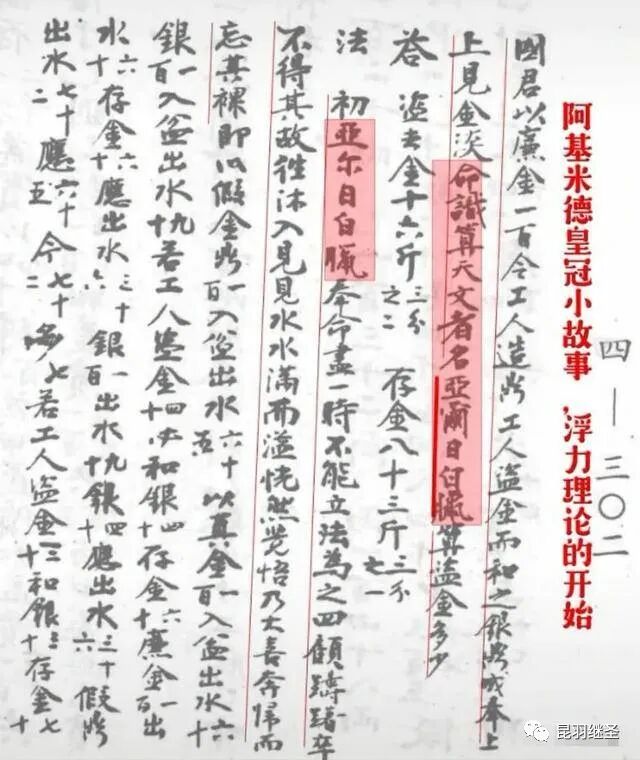 阿基米德皇冠小故事,浮力理论的开始
四—三〇二
國君以廉金一百令工人造鼎工人盜金而和之銀鼎成奉上
上見金淡命識算天文者名亞爾日白臘算盜金多少
答 盜去金十六斤三分之二 存金八十三斤三分之一
法 初亞尔日白臘奉命盡一時不能立法為之四顧躊躇卒
不得其故往沐入見見水水滿而溢恍然覺悟乃大喜奔歸而
忘其裸即以假金鼎一百入盆出水六十五以真金一百入盆出水六十
銀一百入盆出水九十若工人盜金四十必和銀四十存金六十廉金一百出
水六十存金六十應出水三十六銀一百出水九十銀四十應出水三十六假鼎
出水七十二應六十五今七十二多七若工人盜金三十和銀三十存金七十
昆羽继圣